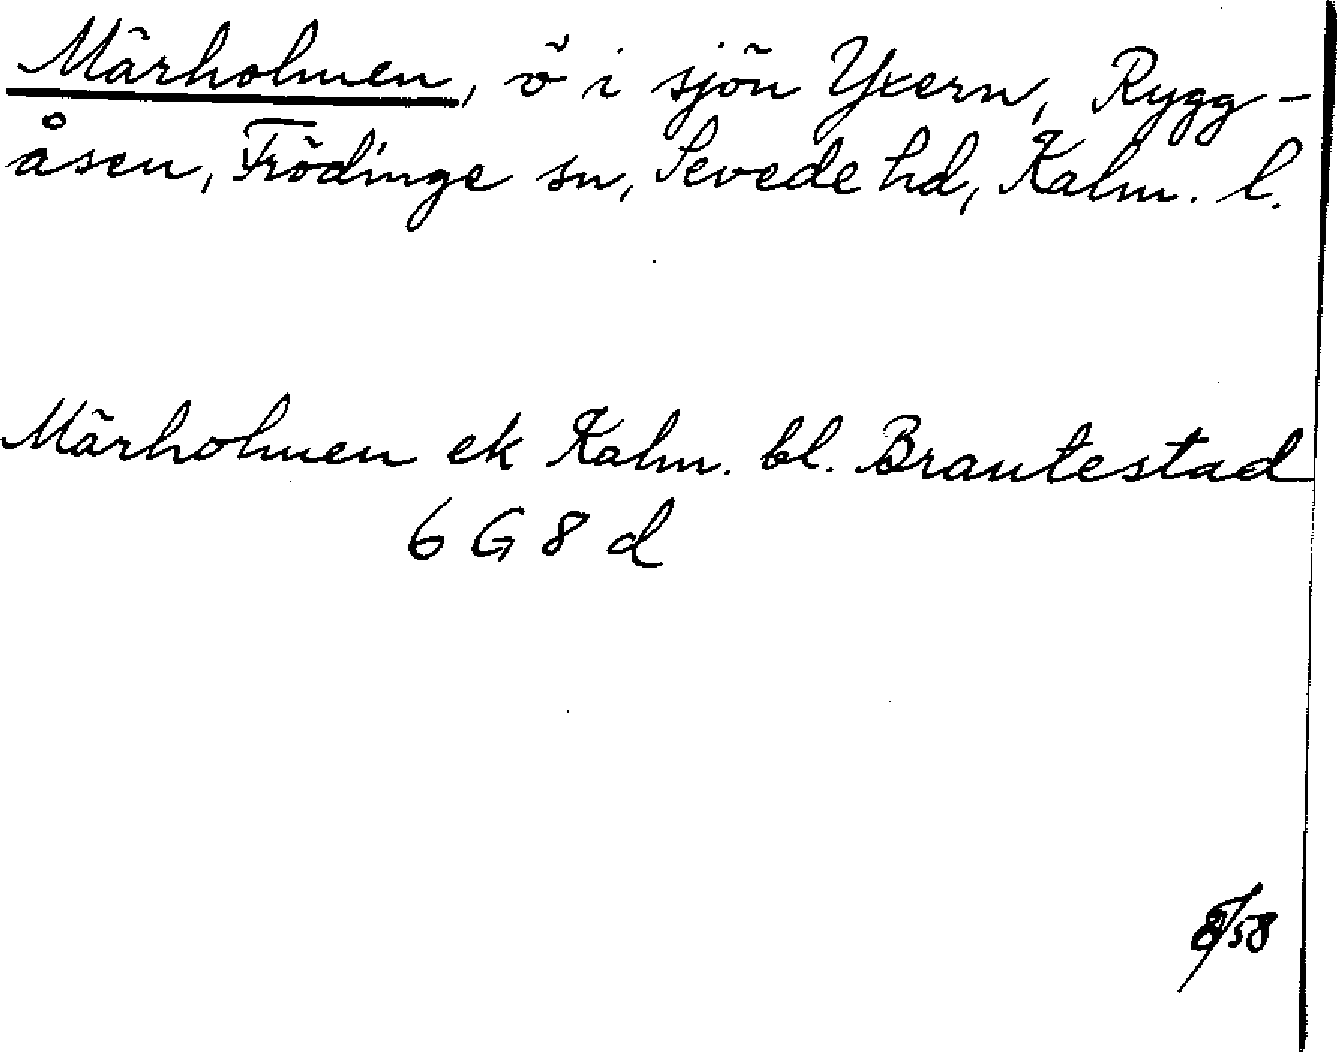 Märholmen, ö i sjön Yxern, Rygg-
åsen, Frödinge sn, Sevede hd, Kalm. l.
Märholmen ek Kalm. bl. Brantestad
6 G 8 d
8/58